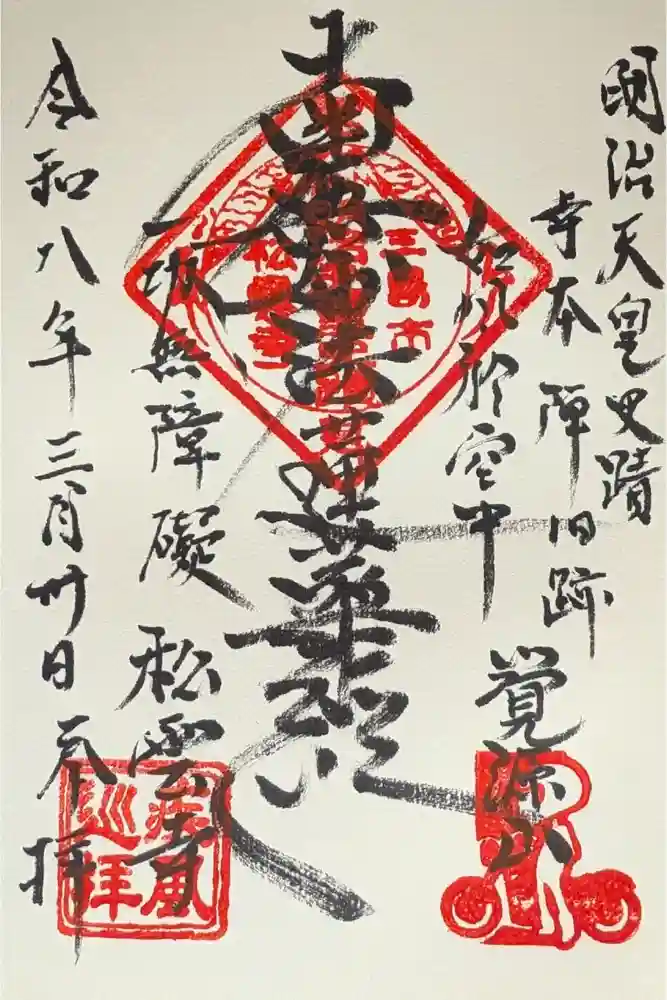 明治天皇史蹟
寺本陣旧跡
覚源山
如風於空中
南無妙法蓮華経
一切無障礙
松雲寺
令和八年三月卅日 奉拝
三島市
松雲寺
巡拝